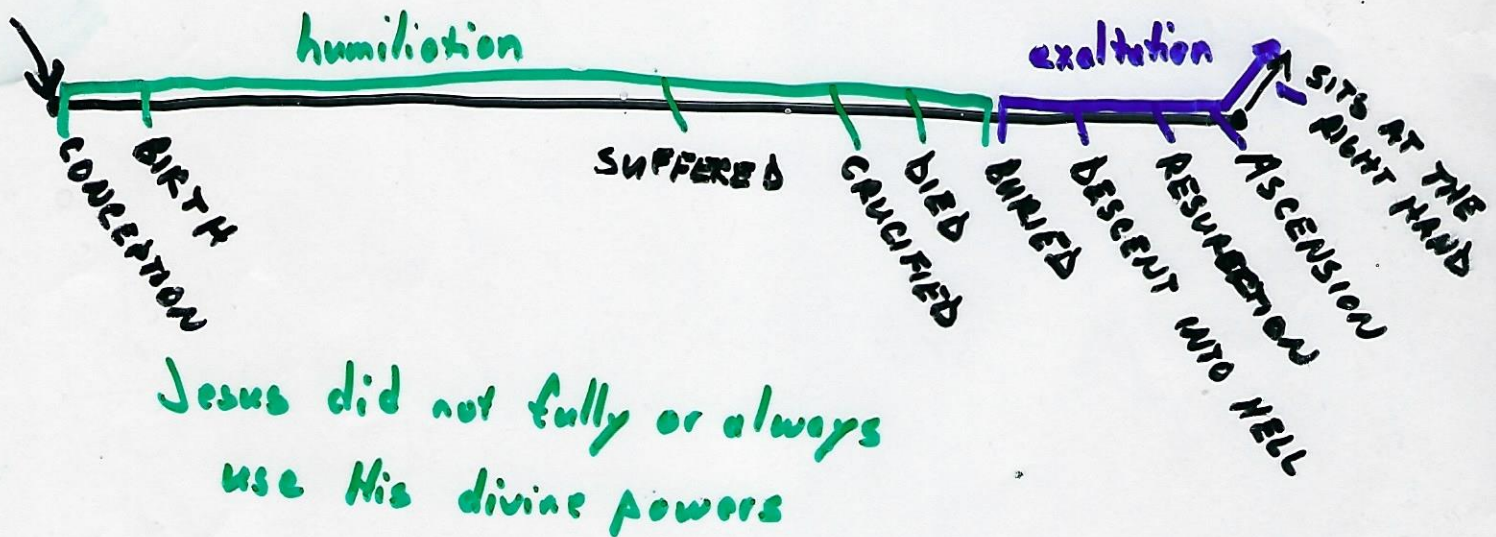 humiliation
exaltation
CONCEPTION
BIRTH
SUFFERED
CRUCIFIED
DIED
BURIED
DESCENT INTO HELL
RESURRECTION
ASCENSION
SITS AT THE
RIGHT HAND
Jesus did not fully or always
use His divine powers